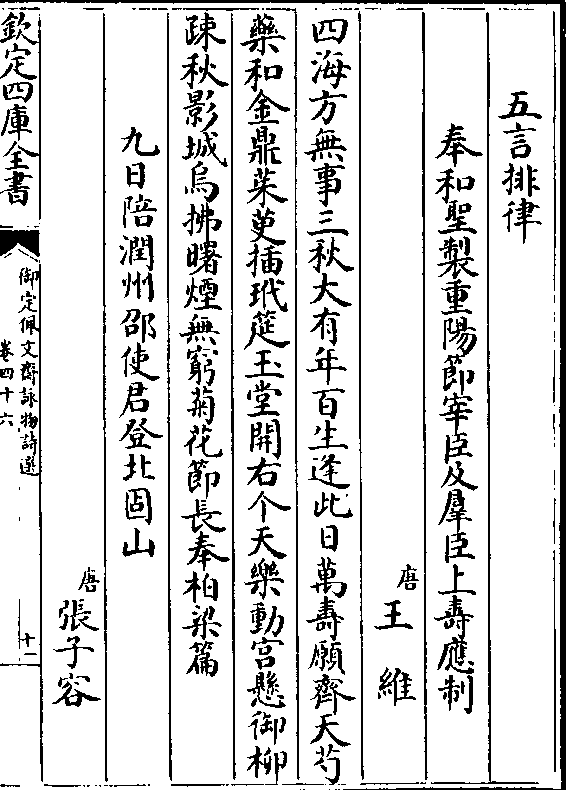 五言排律
奉和聖製重陽節宰臣及羣臣上壽應制
唐王維
四海方無事三秋大有年百生逢此日萬壽願齊天芍
藥和金鼎茱萸揷玳筵玉堂開右个天樂動宮懸御柳
疎秋影城烏拂曙煙無窮菊花節長奉柏梁篇
九日陪潤州邵使君登北固山
唐張子容
欽定四庫全書
御定佩文齋詠物詩選
卷四十六
十二